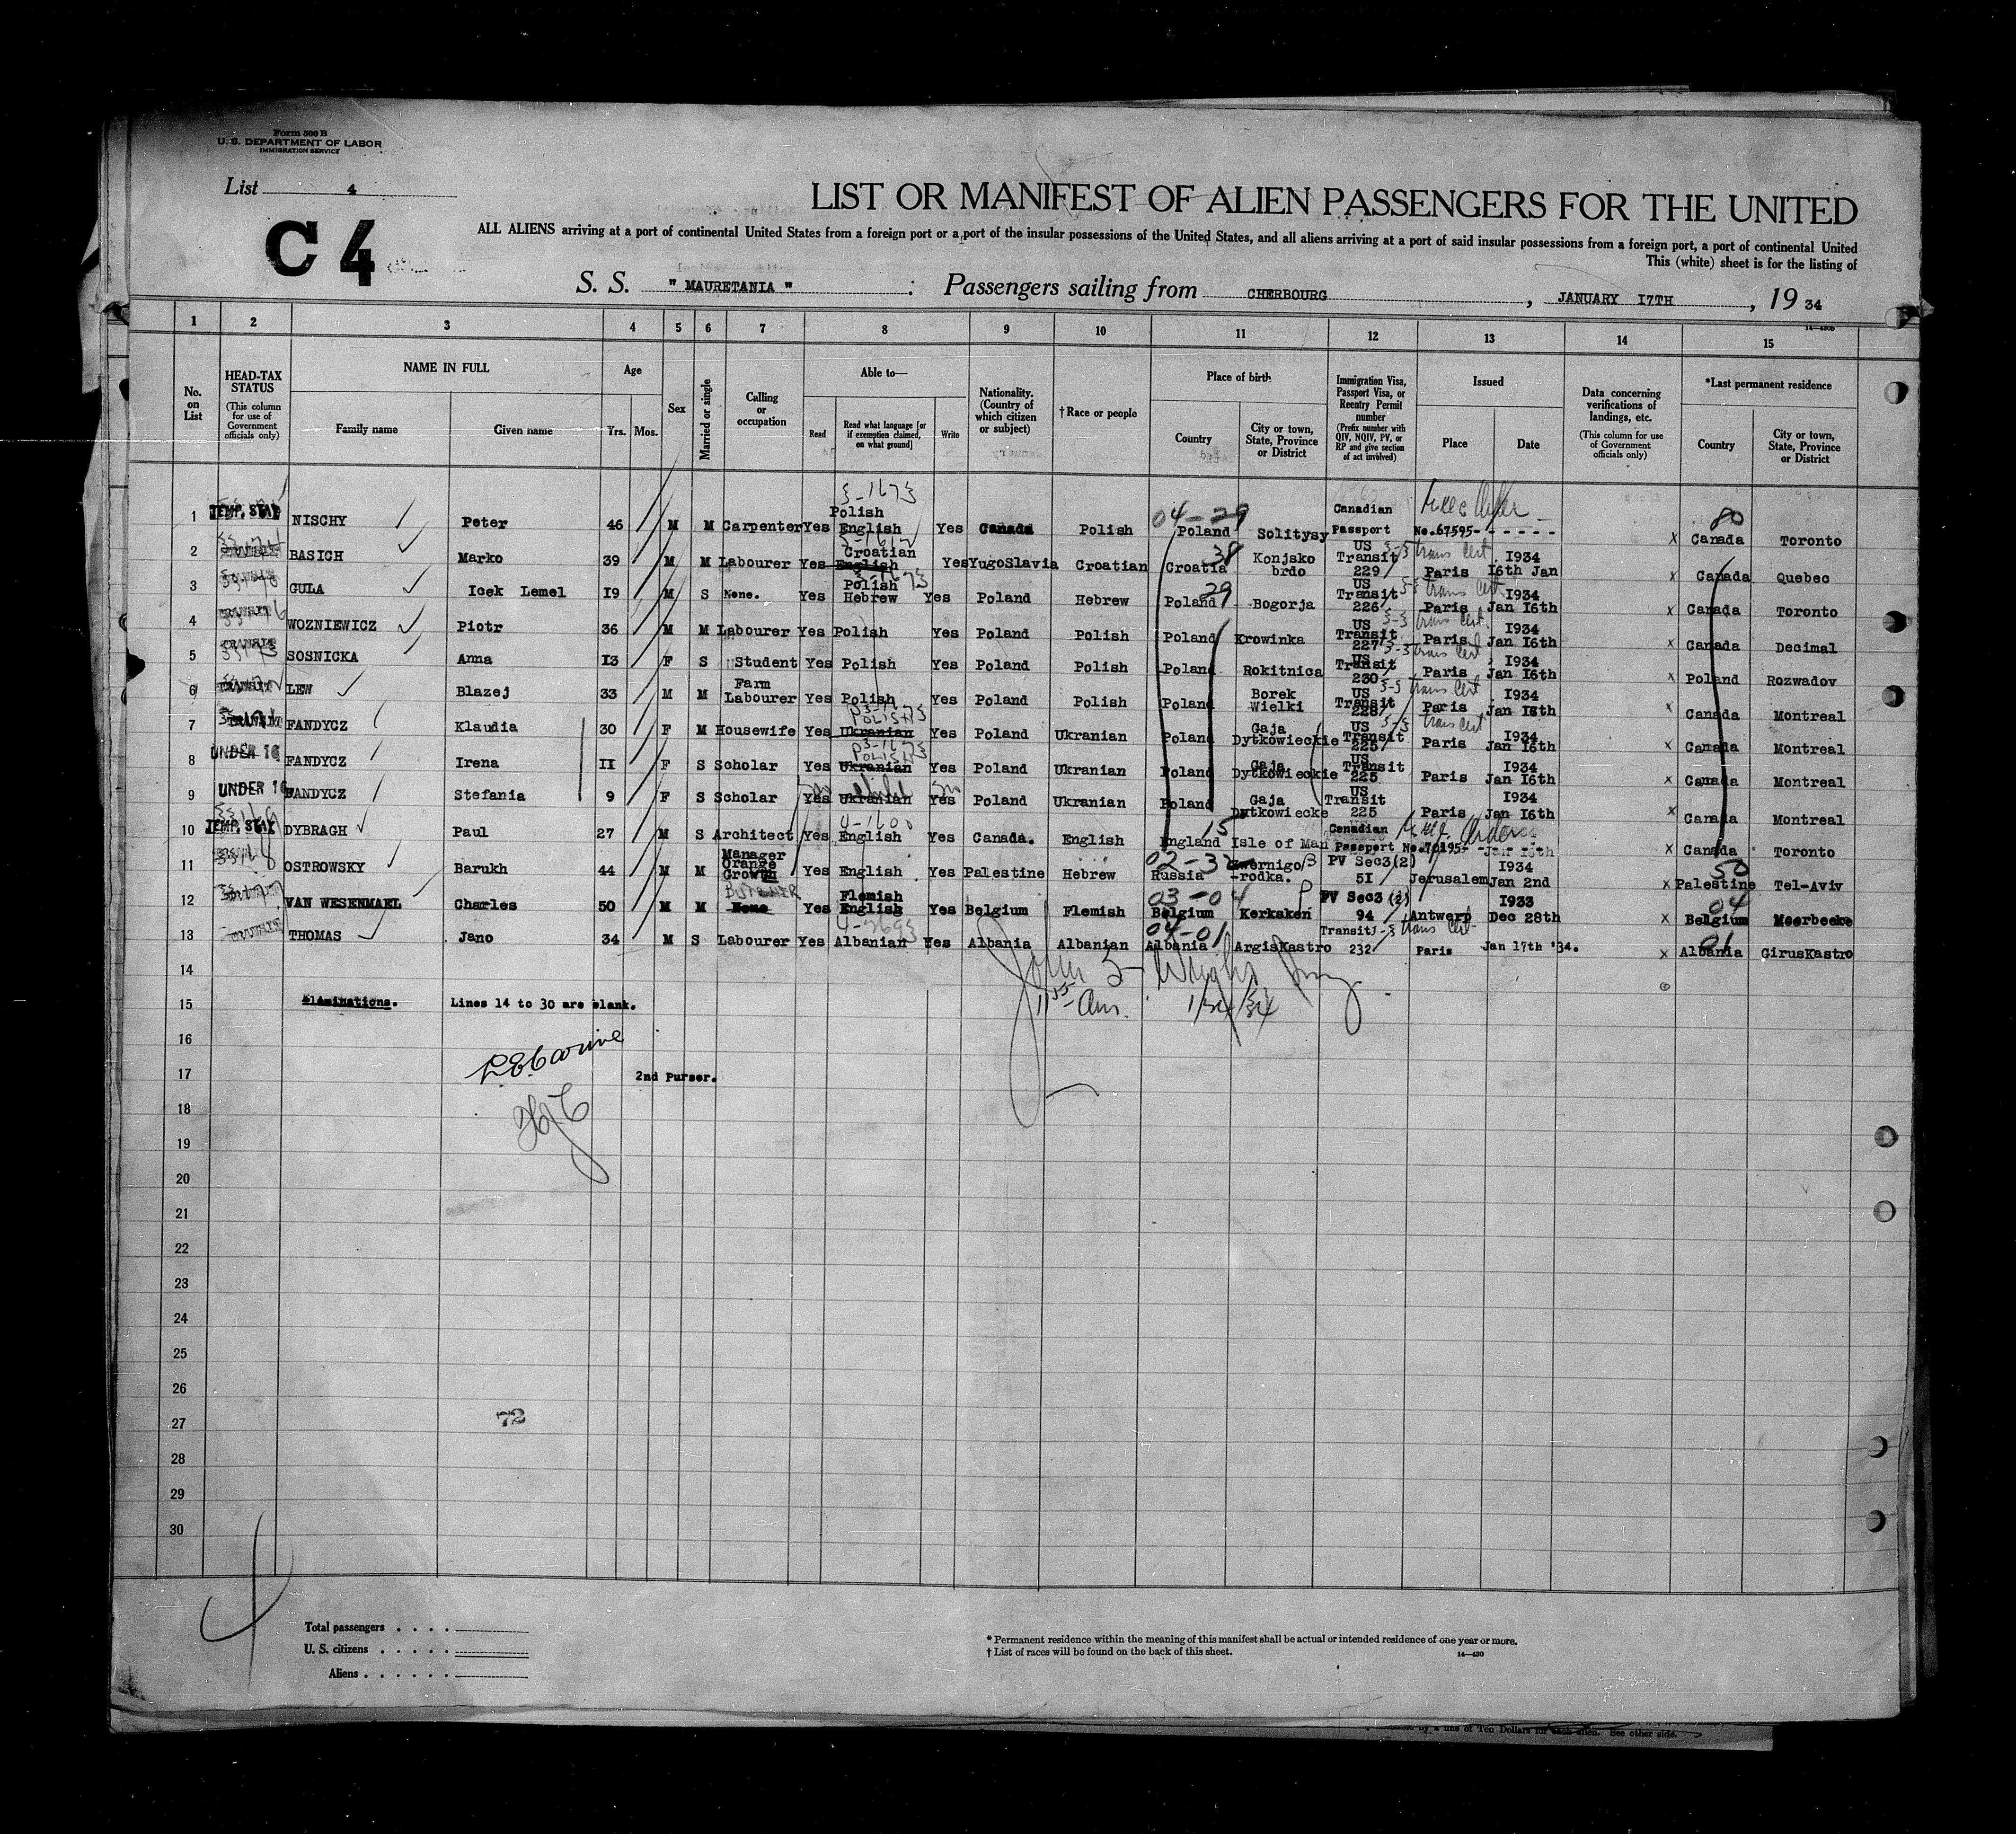 Form 500 B
U. S. DEPARTMENT OF LABOR
IMMIGRATION SERVICE
List 4
C 4
LIST OR MANIFEST OF ALIEN PASSENGERS FOR THE UNITED
ALL ALIENS arriving at a port of continental United States from a foreign port or a port of the insular possessions of the United States, and all aliens arriving at a port of said insular possessions from a foreign port, a port of continental United
This (white) sheet is for the listing of
S. S. " MAURETANIA " : Passengers sailing from CHERBOURG , JANUARY I7TH , 19 34
1 2 3 4 5 6 7 8 9 10 11 12 13 14 15
No. on List
HEAD-TAX STATUS
(This column for use of Government officials only)
NAME IN FULL
Family name
Given name
Age
Yrs. Mos.
Sex
Married or single
Calling or occupation
Able to—
Read
Read what language [or if exemption claimed, on what ground]
Write
Nationality. (Country of which citizen or subject)
† Race or people
Place of birth
Country
City or town, State, Province or District
Immigration Visa, Passport Visa, or Reentry Permit number
(Prefix number with QIV, NQIV, PV, or RP and give section of act involved)
Issued
Place
Date
Data concerning verifications of landings, etc.
(This column for use of Government officials only)
*Last permanent residence
Country
City or town, State, Province or District
1 TEMP. STAY NISCHY Peter 46 M M Carpenter Yes Polish English Yes Canada Polish 04-29 Poland Solitysy Canadian Passport No.67595- - - - - - x 80 Canada Toronto
2 BASICH Marko 39 M M Labourer Yes Croatian English Yes YugoSlavia Croatian 38 Croatia Konjsko brdo US Transit 229 trans Cert Paris I934 16th Jan x Canada Quebec
3 GULA Icek Lemel I9 M S None. Yes Polish Hebrew Yes Poland Hebrew 29 Poland Bogorja US Transit 226 trans Cert Paris I934 Jan I6th x Canada Toronto
4 WOZNIEWICZ Piotr 36 M M Labourer Yes Polish Yes Poland Polish Poland Krowinka US Transit 227 trans Cert. Paris I934 Jan I6th x Canada Decimal
5 SOSNICKA Anna I3 F S Student Yes Polish Yes Poland Polish Poland Rokitnica US Transit 230 trans Cert Paris I934 Jan I6th x Poland Rozwadov
6 LEW Blazej 33 M M Farm Labourer Yes Polish Yes Poland Polish Poland Borek Wielki US Transit 228 trans Cert Paris I934 Jan I6th Canada Montreal
7 FANDYCZ Klaudia 30 F M Housewife Yes POLISH Ukranian Yes Poland Ukranian Poland Gaja Dytkowieckie US Transit 225 trans Cert Paris I934 Jan I6th x Canada Montreal
8 UNDER 16 FANDYCZ Irena II F S Scholar Yes POLISH Ukranian Yes Poland Ukranian Poland Gaja Dytkowieckie US Transit 225 Paris I934 Jan I6th x Canada Montreal
9 UNDER 16 FANDYCZ Stefania 9 F S Scholar Yes Ukranian Yes Poland Ukranian Poland Gaja Dytkowiecke US Transit 225 Paris I934 Jan I6th x Canada Montreal
10 TEMP. STAY DYBRAGH Paul 27 M S Architect Yes English Yes Canada. English 15 England Isle of Man Canadian Passport No.70195- x Canada Toronto
11 OSTROWSKY Barukh 44 M M Manager Orange Growth Yes English Yes Palestine Hebrew 02-32 Russia -rodka. PV Sec3(2) 5I Jerusalem I934 Jan 2nd x 50 Palestine Tel-Aviv
12 VAN WESENMAEL Charles 50 M M BUTCHER None Yes Flemish English Yes Belgium Flemish 03-04 Belgium Kerksken PV Sec3 (2) 94 Antwerp I933 Dec 28th x 04 Belgium Meerbeeke
13 THOMAS Jano 34 M S Labourer Yes Albanian Yes Albania Albanian 04-01 Albania ArgisKastro Transit 232 trans Cert Paris Jan 17th '34. x 01 Albania GirusKastro
14
15 Eliminations. Lines 14 to 30 are blank.
11 55 am. 1/24/34
16
17 2nd Purser.
18
19
20
21
22
23
24
25
26
27 72
28
29
30
Total passengers . . . .
U. S. citizens . . . . .
Aliens . . . . . .
* Permanent residence within the meaning of this manifest shall be actual or intended residence of one year or more.
† List of races will be found on the back of this sheet.
14—430
by a fine of Ten Dollars for each alien. See other side.